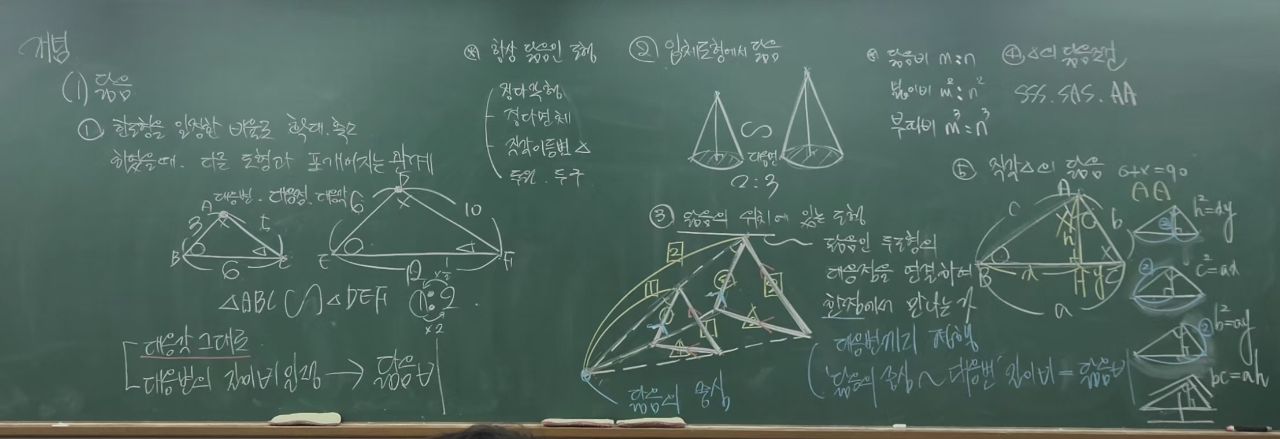 개념
(1) 닮음
① 한 도형을 일정한 비율로 확대·축소
하였을 때, 다른 도형과 포개어지는 관계
대응변, 대응점, 대응각
A
3
5
B
6
C
D
6
10
E
12
F
△ABC ∽ △DEF
1:2
×2
대응각 그대로
대응변의 길이비 일정 → 닮음비
* 항상 닮음인 도형
정다각형
정다면체
직각이등변△
두 원, 두 구
② 입체도형에서 닮음
∽
대응면
2:3
* 닮음비 m:n
넓이비 m²:n²
부피비 m³:n³
③ 닮음의 위치에 있는 도형
닮음인 두 도형의
대응점을 연결하여
한 점에서 만나는 것
2
1
닮음의 중심
대응변끼리 평행
닮음의 중심 ~ 대응변 길이비 = 닮음비
④ △의 닮음조건
SSS. SAS. AA
⑤ 직각△의 닮음
o+x=90
AA
A
c
b
h
B
x
H
y
C
a
h²=xy
c²=ax
b²=ay
bc=ah